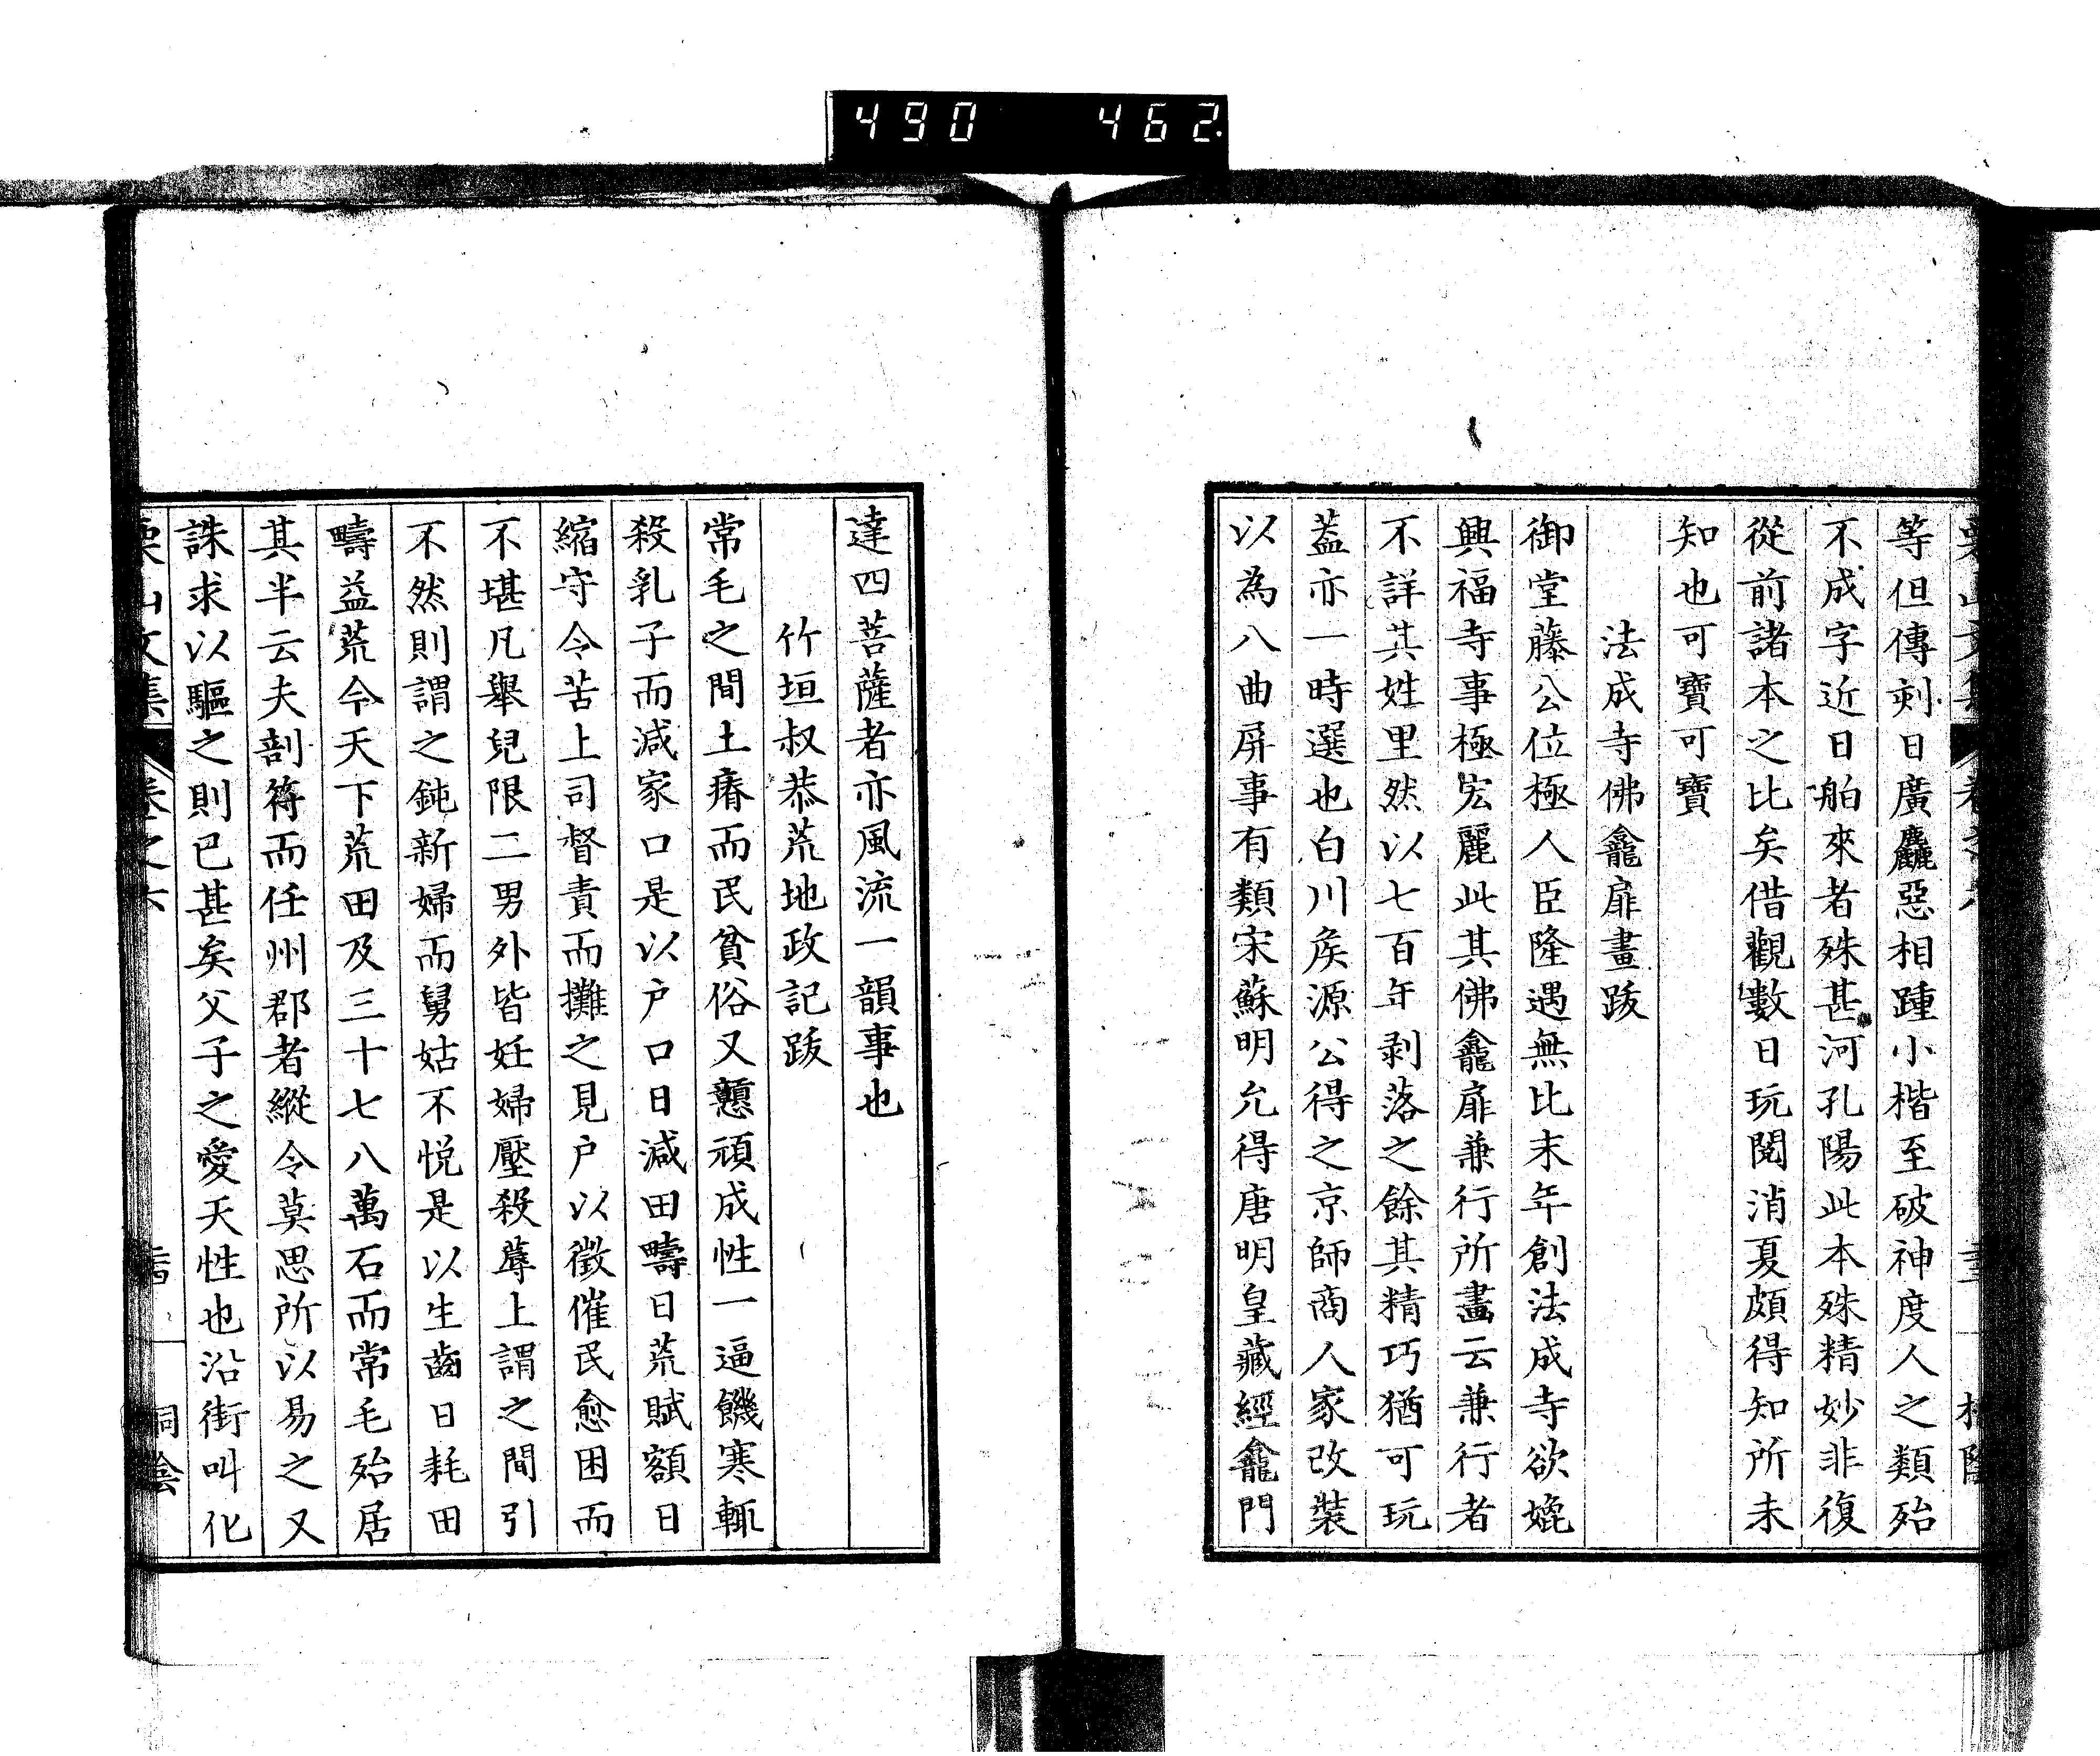 490 462
等但傳刻日廣麤惡相踵小楷至破神度人之類殆
不成字近日舶來者殊甚河孔陽此本殊精妙非復
從前諸本之比矣借觀數日玩閱消夏頗得知所未
知也可寶可寶
法成寺佛龕扉畫跋
御堂藤公位極人臣隆遇無比末年創法成寺欲媲
興福寺事極宏麗此其佛龕扉兼行所畫云兼行者
不詳其姓里然以七百年剥落之餘其精巧猶可玩
蓋亦一時選也白川矦源公得之京師商人家改裝
以為八曲屏事有類宋蘇明允得唐明皇藏經龕門
達四菩薩者亦風流一韻事也
竹垣叔恭荒地政記跋
常毛之間土瘠而民貧俗又戇頑成性一逼饑寒輒
殺乳子而減家口是以户口日減田疇日荒賦額日
縮守令苦上司督責而攤之見户以徵催民愈困而
不堪凡舉兒限二男外皆妊婦壓殺蓐上謂之間引
不然則謂之鈍新婦而舅姑不悦是以生齒日耗田
疇益荒今天下荒田及三十七八萬石而常毛殆居
其半云夫剖符而任州郡者縱令莫思所以易之又
誅求以驅之則已甚矣父子之愛天性也沿街叫化
栗山文集 卷之六